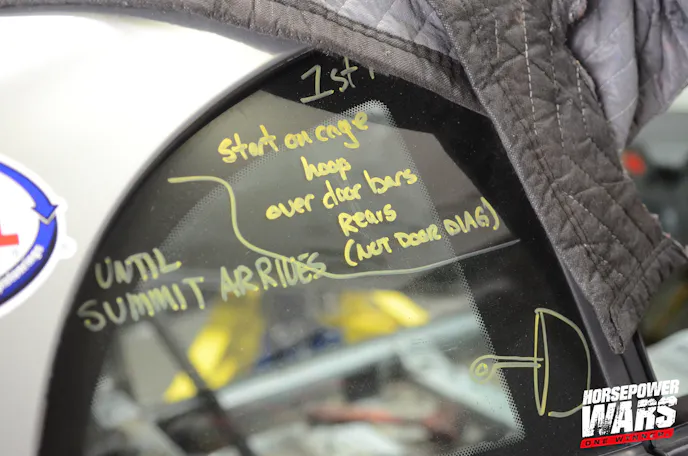 1st
Start on cage
hoop
over door bars
Rears
(NOT DOOR DIAG)
UNTIL
SUMMIT ARRIVES
HORSEPOWER
WARS